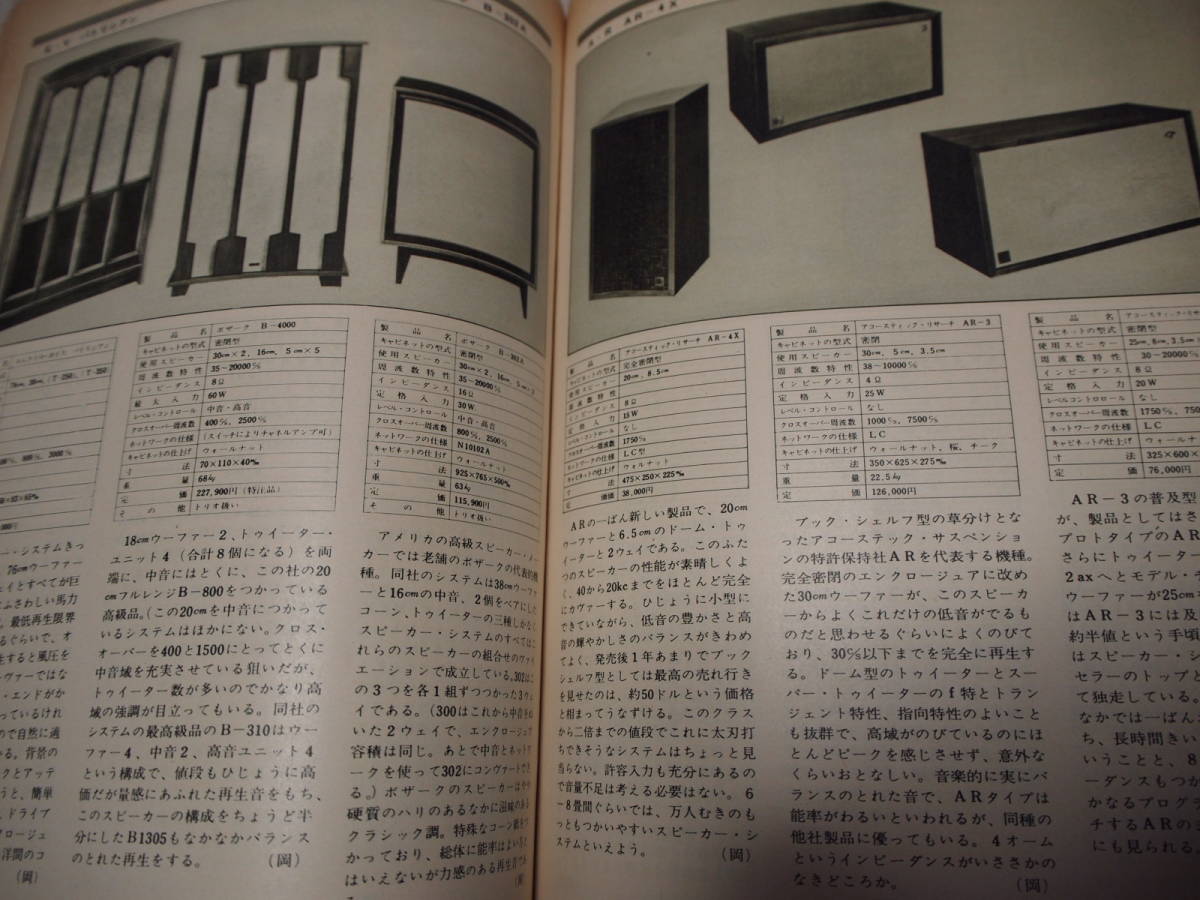 E.V パトリシアン
B-302A
AR AR-4X
製品名 ボザーク B-4000
キャビネットの型式 密閉型
使用スピーカー 30cm×2，16cm，5cm×5
周波数特性 35~20000c/s
インピーダンス 8Ω
最大入力 60W
レベル・コントロール 中音・高音
クロスオーバー周波数 400c/s，2500c/s
ネットワークの仕様 (スイッチによりチャネルアンプ可)
キャビネットの仕上げ ウォールナット
寸法 70×110×40
重量 68kg
定価 227,900円(特注品)
その他 トリオ扱い
18cmウーファー2、トゥイーター・
ユニット4（合計8個になる）を両
端に、中音にはとくに、この社の20
cmフルレンジB－800をつかっている
高級品。(この20cmを中音につかって
いるシステムはほかにない。クロス・
オーバーを400と1500にとってとくに
中音域を充実させている狙いだが、
トゥイーター数が多いのでかなり高
域の強調が目立ってもいる。同社の
システムの最高級品のB－310はウー
ファー4、中音2、高音ユニット4
という構成で、値段もひじょうに高
価だが量感にあふれた再生音をもち、
このスピーカーの構成をちょうど半
分にしたB1305もなかなかバランス
のとれた再生をする。 (岡)
製品名 ボザーク B-302A
キャビネットの型式 密閉型
使用スピーカー 30cm×2，16cm，5cm×2
周波数特性 35~20000c/s
インピーダンス 16Ω
定格入力 30W
レベル・コントロール 中音・高音
クロスオーバー周波数 800c/s，2500c/s
ネットワークの仕様 N10102A
キャビネットの仕上げ ウォールナット
寸法 925×765×500
重量 63kg
定価 115,900円
その他 トリオ扱い
アメリカの高級スピーカー・メー
カーでは老舗のボザークの代表的機
種。同社のシステムは38cmウーファ
ーと16cmの中音、2個をペアにした
コーン、トゥイーターの三種しかなく
スピーカー・システムのすべてはこ
れらのスピーカーの組合せのヴァリ
エーションで成立している。302はこ
の3つを各1組ずつつかった3ウェ
イである。(300はこれから中音をぬ
いた2ウェイで、エンクロージュア
容積は同じ。あとで中音とネットワ
ークを使って302にコンヴァートでき
る。）ボザークのスピーカーはやや
硬質のハリのあるなかに温味のある
クラシック調。特殊なコーン紙をつ
かっており、総体に能率はよいほうと
はいえないが力感のある再生音であ
製品名 アコースティック・リサーチ AR-4X
キャビネットの型式 完全密閉型
使用スピーカー 20cm，8.5cm
周波数特性
インピーダンス 8Ω
定格入力 15W
レベル・コントロール なし
クロスオーバー周波数 1750c/s
ネットワークの仕様 LC型
キャビネットの仕上げ ウォルナット
寸法 475×250×225
定価 38,000円
ARの一ばん新しい製品で、20cm
ウーファーと6.5cmのドーム・トゥ
イーターと2ウェイである。このふた
つのスピーカーの性能が素晴しくよ
く、40から20kcまでをほとんど完全
にカヴァーする。ひじょうに小型に
できていながら、低音の豊かさと高
音の輝やかしさのバランスがきわめ
てよく、発売後1年あまりでブック
シェルフ型としては最高の売れ行き
を見せたのは、約50ドルという価格
と相まってうなずける。このクラス
から二倍までの値段でこれに太刀打
ちできそうなシステムはちょっと見
当らない。許容入力も充分にあるの
で音量不足は考える必要はない。6
－8畳間ぐらいでは、万人むきのも
っともつかいやすいスピーカー・シ
ステムといえよう。 (岡)
製品名 アコースティック・リサーチ AR-3
キャビネットの型式 密閉
使用スピーカー 30cm，5cm，3.5cm
周波数特性 38~10000c/s
インピーダンス 4Ω
定格入力 25W
レベル・コントロール なし
クロスオーバー周波数 1000c/s，7500c/s
ネットワークの仕様 LC
キャビネットの仕上げ ウォールナット、桜、チーク
寸法 350×625×275
重量 22.5kg
定価 126,000円
ブック・シェルフ型の草分けとな
ったアコーステック・サスペンショ
ンの特許保持社ARを代表する機種。
完全密閉のエンクロージュアに改め
た30cmウーファーが、このスピーカ
ーからよくこれだけの低音がでるも
のだと思わせるぐらいによくのびて
おり、30c/s以下までを完全に再生す
る。ドーム型のトゥイーターとスー
パー・トゥイーターのf特とトラン
ジェント特性、指向特性のよいこと
も抜群で、高域がのびているのにほ
とんどピークを感じさせず、意外な
くらいおとなしい。音楽的に実にバ
ランスのとれた音で、ARタイプは
能率がわるいといわれるが、同種の
他社製品に優ってもいる。4オーム
というインピーダンスがいささかの
なきどころか。 (岡)
製品名 アコースティック・リサーチ
キャビネットの型式 密閉
使用スピーカー 25cm，
周波数特性 30~20000c/s
インピーダンス 8Ω
定格入力 20W
レベル・コントロール なし
クロスオーバー周波数 1750c/s，
ネットワークの仕様 LC
キャビネットの仕上げ ウォールナ
寸法 325×600×
定価 76,000円
AR－3の普及型
が、製品としてはさ
プロトタイプのAR
さらにトゥイーター
2axへとモデル・チ
ウーファーが25cm
はAR－3には及
約半値という手頃
はスピーカー・シ
セラーのトップと
て独走している。
なかでは一ばん
ち、長時間きい
ということと、8
ーダンスもつか
かなるプログ
チするARの
にも見られる。